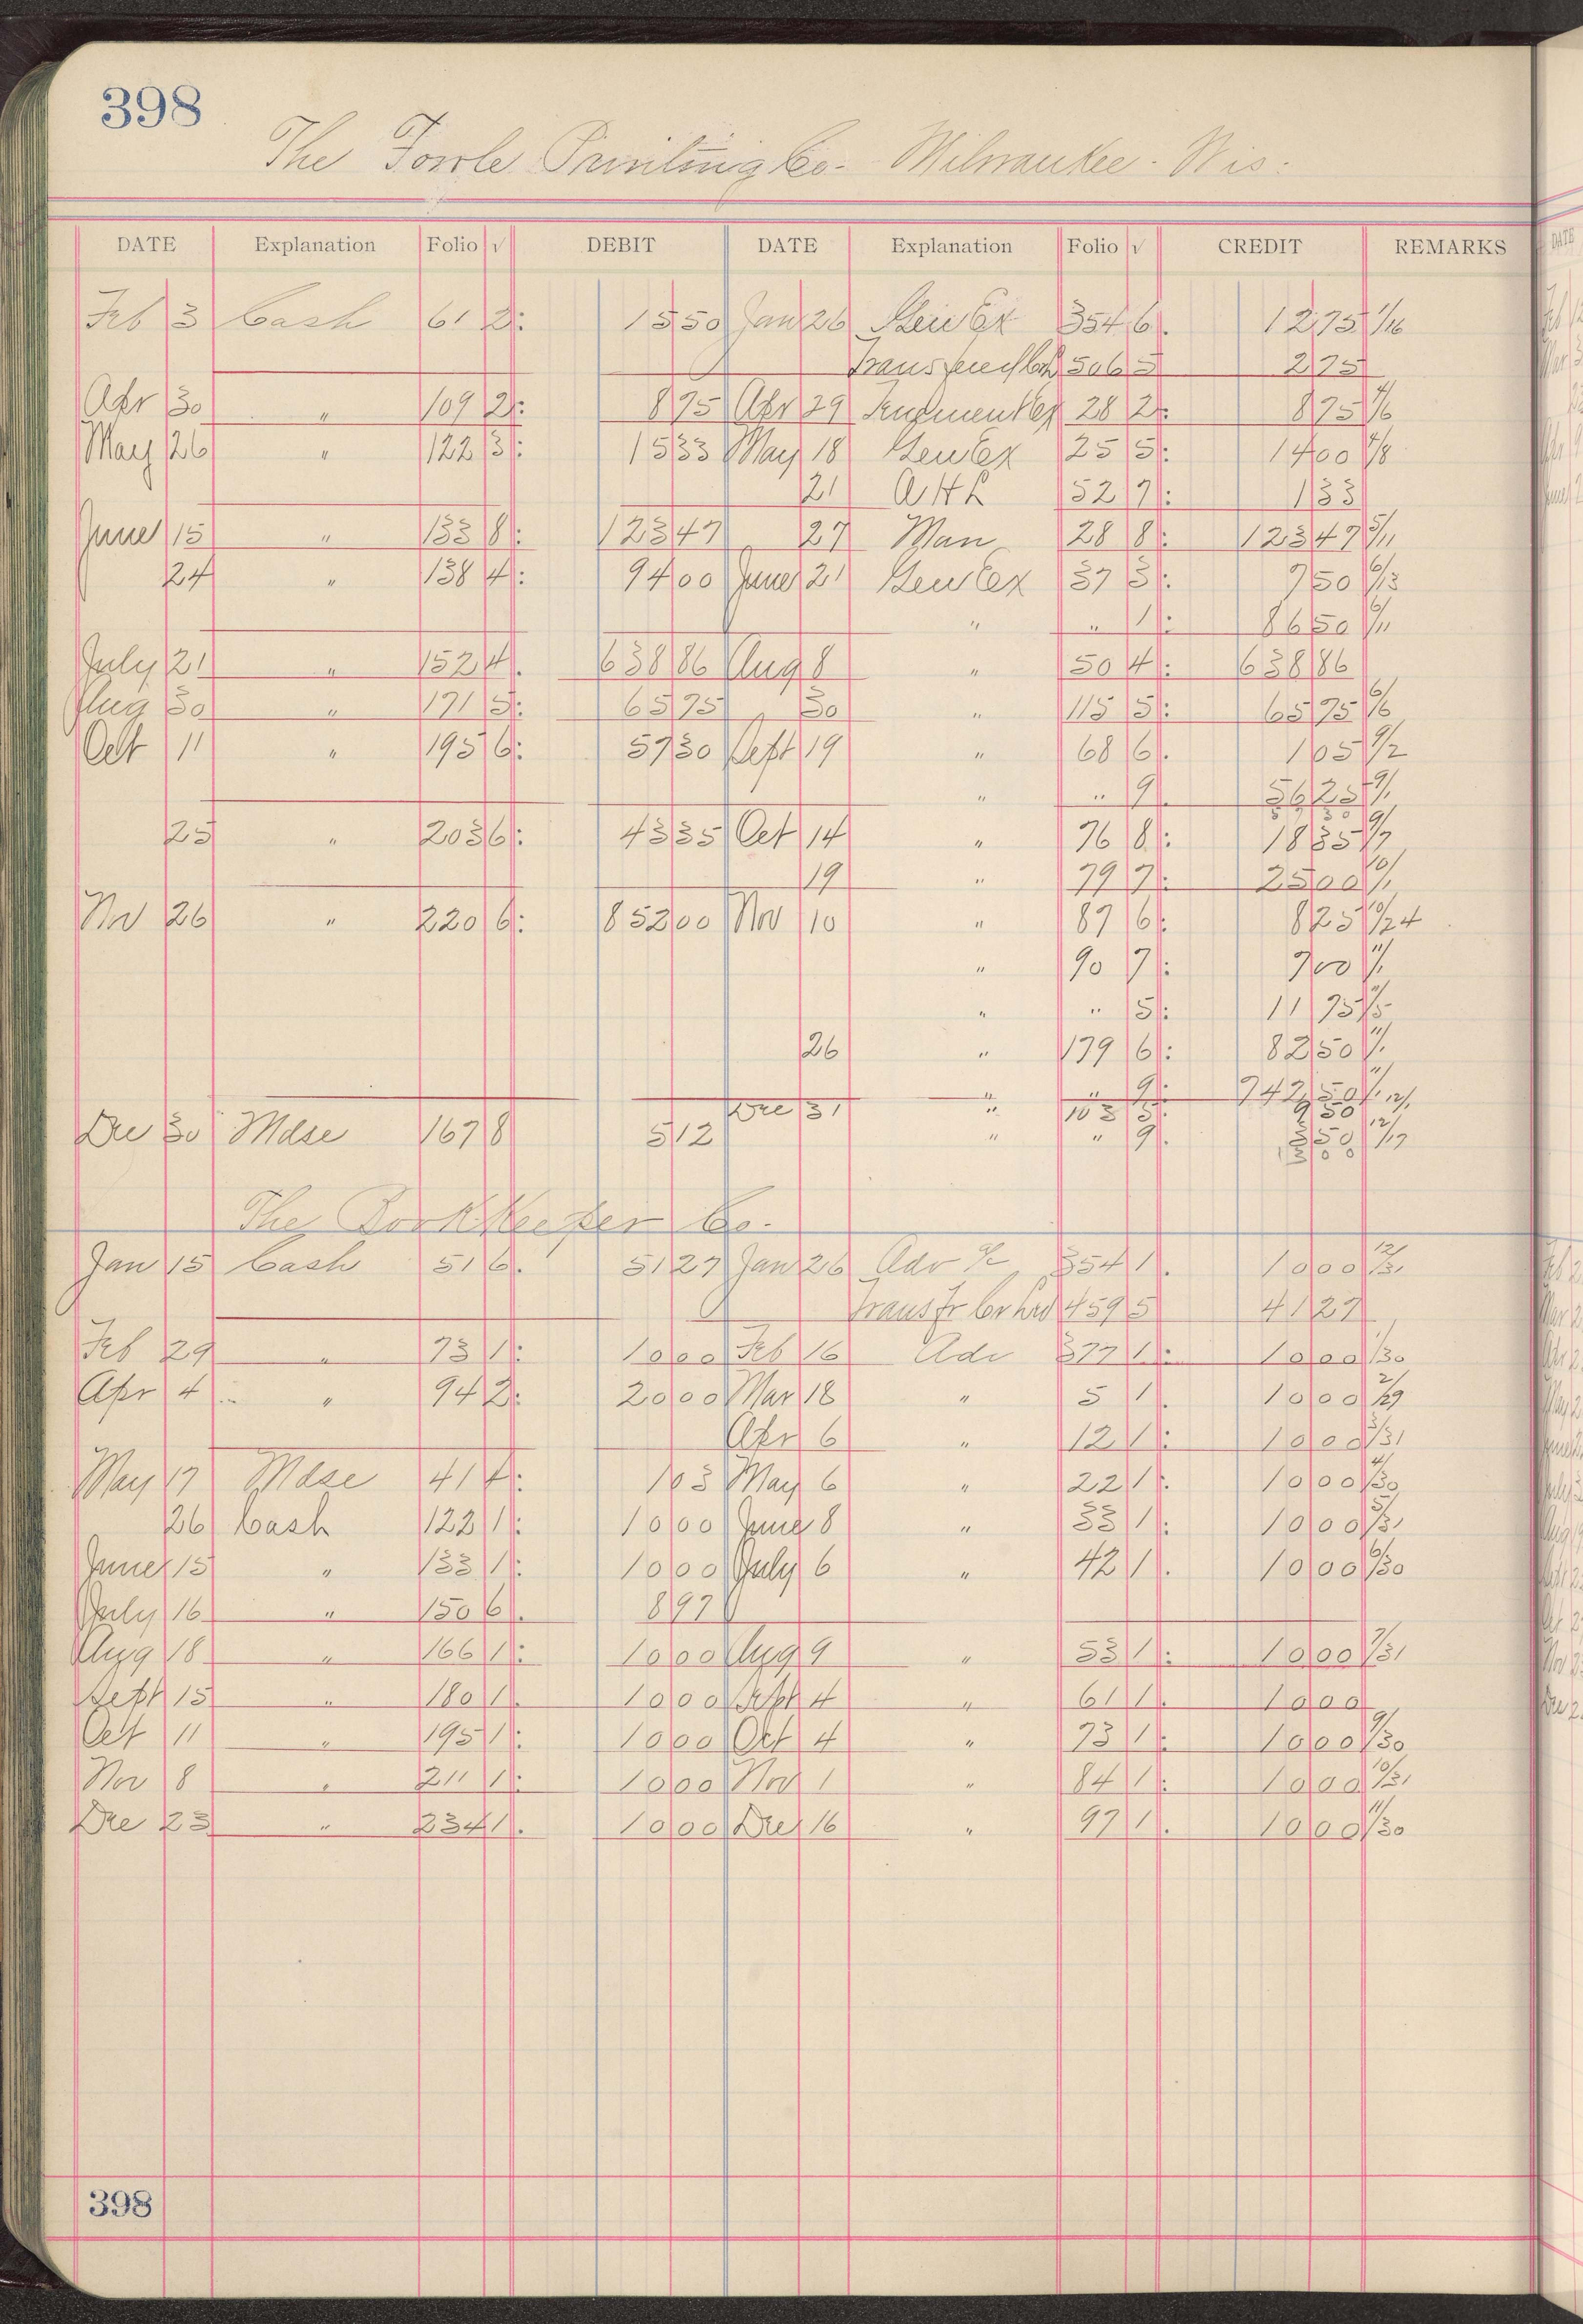 398
The Fowle Printing Co. Milwaukee. Wis.
DATE Explanation Folio √ DEBIT DATE Explanation Folio √ CREDIT REMARKS
Feb 3 Cash 61 2: 15 50 Jan 26 Gen Ex 354 6. 12 75 1/16
506 5 2 75
Apr 30 " 109 2: 8 75 Apr 29 28 2: 8 75 4/6
May 26 " 122 3: 15 33 May 18 Gen Ex 25 5: 14 00 4/8
21 A H L 52 7: 1 33
June 15 " 133 8: 123 47 27 Man 28 8: 123 47 5/11
24 " 138 4: 94 00 June 21 Gen Ex 37 3: 7 50 6/13
" " 1: 86 50 6/11
July 21 " 152 4. 638 86 Aug 8 " 50 4: 638 86
Aug 30 " 171 5: 65 75 30 " 115 5: 65 75 6/6
Oct 11 " 195 6: 57 30 Sept 19 " 68 6. 1 05 9/2
" " 9. 56 25 9/1
25 " 203 6: 43 35 Oct 14 " 76 8: 18 35 9/7
19 " 79 7: 25 00 10/1
Nov 26 " 220 6: 852 00 Nov 10 " 87 6: 8 25 10/24
" 90 7: 7 00 11/1
" " 5: 11 75 11/5
26 " 179 6: 82 50 11/1
" " 9: 742 50 11/1
Dec 31 " 103 5: 9 50 12/1
Dec 30 Mdse 167 8 5 12 " " 9. 3 50 12/17
13 00
The Book Keeper Co.
Jan 15 Cash 51 6. 51 27 Jan 26 Adv a/c 354 1. 10 00 12/31
Transfr 459 5 41 27
Feb 29 " 73 1: 10 00 Feb 16 Adv 377 1: 10 00 1/30
Apr 4 " 94 2: 20 00 Mar 18 " 5 1. 10 00 2/29
Apr 6 " 12 1: 10 00 3/31
May 17 Mdse 41 4: 1 03 May 6 " 22 1: 10 00 4/30
26 Cash 122 1: 10 00 June 8 " 33 1: 10 00 5/31
June 15 " 133 1: 10 00 July 6 " 42 1. 10 00 6/30
July 16 " 150 6. 8 97
Aug 18 " 166 1: 10 00 Aug 9 " 53 1: 10 00 7/31
Sept 15 " 180 1. 10 00 Sept 4 " 61 1. 10 00
Oct 11 " 195 1: 10 00 Oct 4 " 73 1: 10 00 9/30
Nov 8 " 211 1: 10 00 Nov 1 " 84 1: 10 00 10/31
Dec 23 " 234 1. 10 00 Dec 16 " 97 1. 10 00 11/30
398